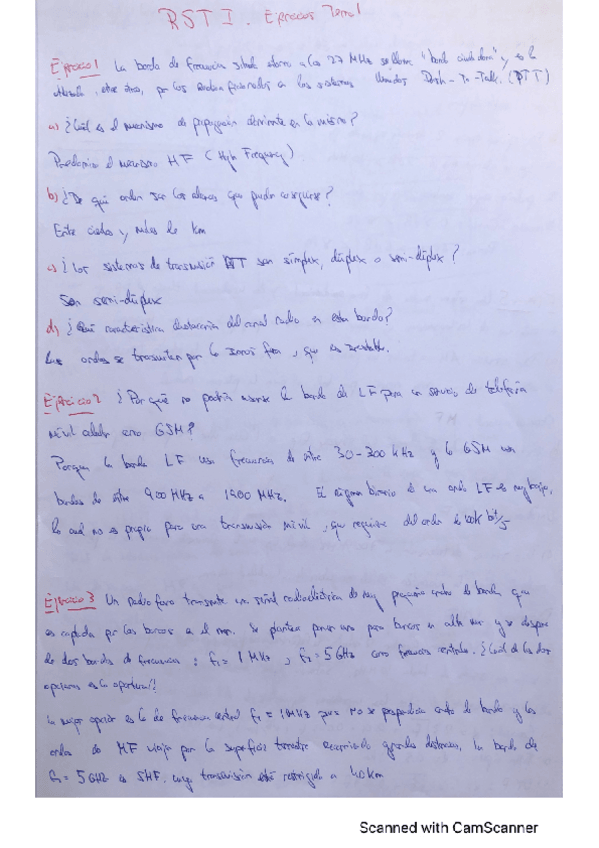 RST I. Ejercicios Tema 1
Ejercicio 1 La banda de frecuencia situada en torno a los 27 MHz se llama "banda ciudadana" y es la
utilizada, entre otros, por los radioaficionados en los sistemas llamados Push-To-Talk. (PTT)
a) ¿Cuál es el mecanismo de propagación dominante en la misma?
Predomina el mecanismo HF (High Frequency).
b) ¿De qué orden son los alcances que pueden conseguirse?
Entre cientos y miles de km
c) ¿Los sistemas de transmisión PTT son símplex, dúplex o semi-dúplex?
Son semi-dúplex
d) ¿Qué característica destacaría del canal radio en esta banda?
Las ondas se transmiten por la ionosfera, que es inestable.
Ejercicio 2 ¿Por qué no podría usarse la banda de LF para un servicio de telefonía
móvil celular como GSM?
Porque la banda LF usa frecuencias de entre 30-300 kHz y la GSM usa
bandas de entre 900 MHz a 1900 MHz. El régimen binario de una onda LF es muy bajo,
lo cual no es propio para una transmisión móvil, que requiere del orden de bit/s
Ejercicio 3 Un radio faro transmite una señal radioeléctrica de muy pequeño ancho de banda que
es captada por los barcos en el mar. Se plantea poner uno para barcos en alta mar y se dispone
de dos bandas de frecuencias: f1 = 1 MHz, f2 = 5 GHz como frecuencia centrales. ¿Cuál de las dos
opciones es la oportuna?
La mejor opción es la de frecuencia central f1 = 1 MHz pues no se desperdicia ancho de banda y las
ondas de MF viajan por la superficie terrestre recorriendo grandes distancias, la banda de
f2 = 5 GHz es SHF, cuya transmisión está restringida a 40 km
Scanned with CamScanner